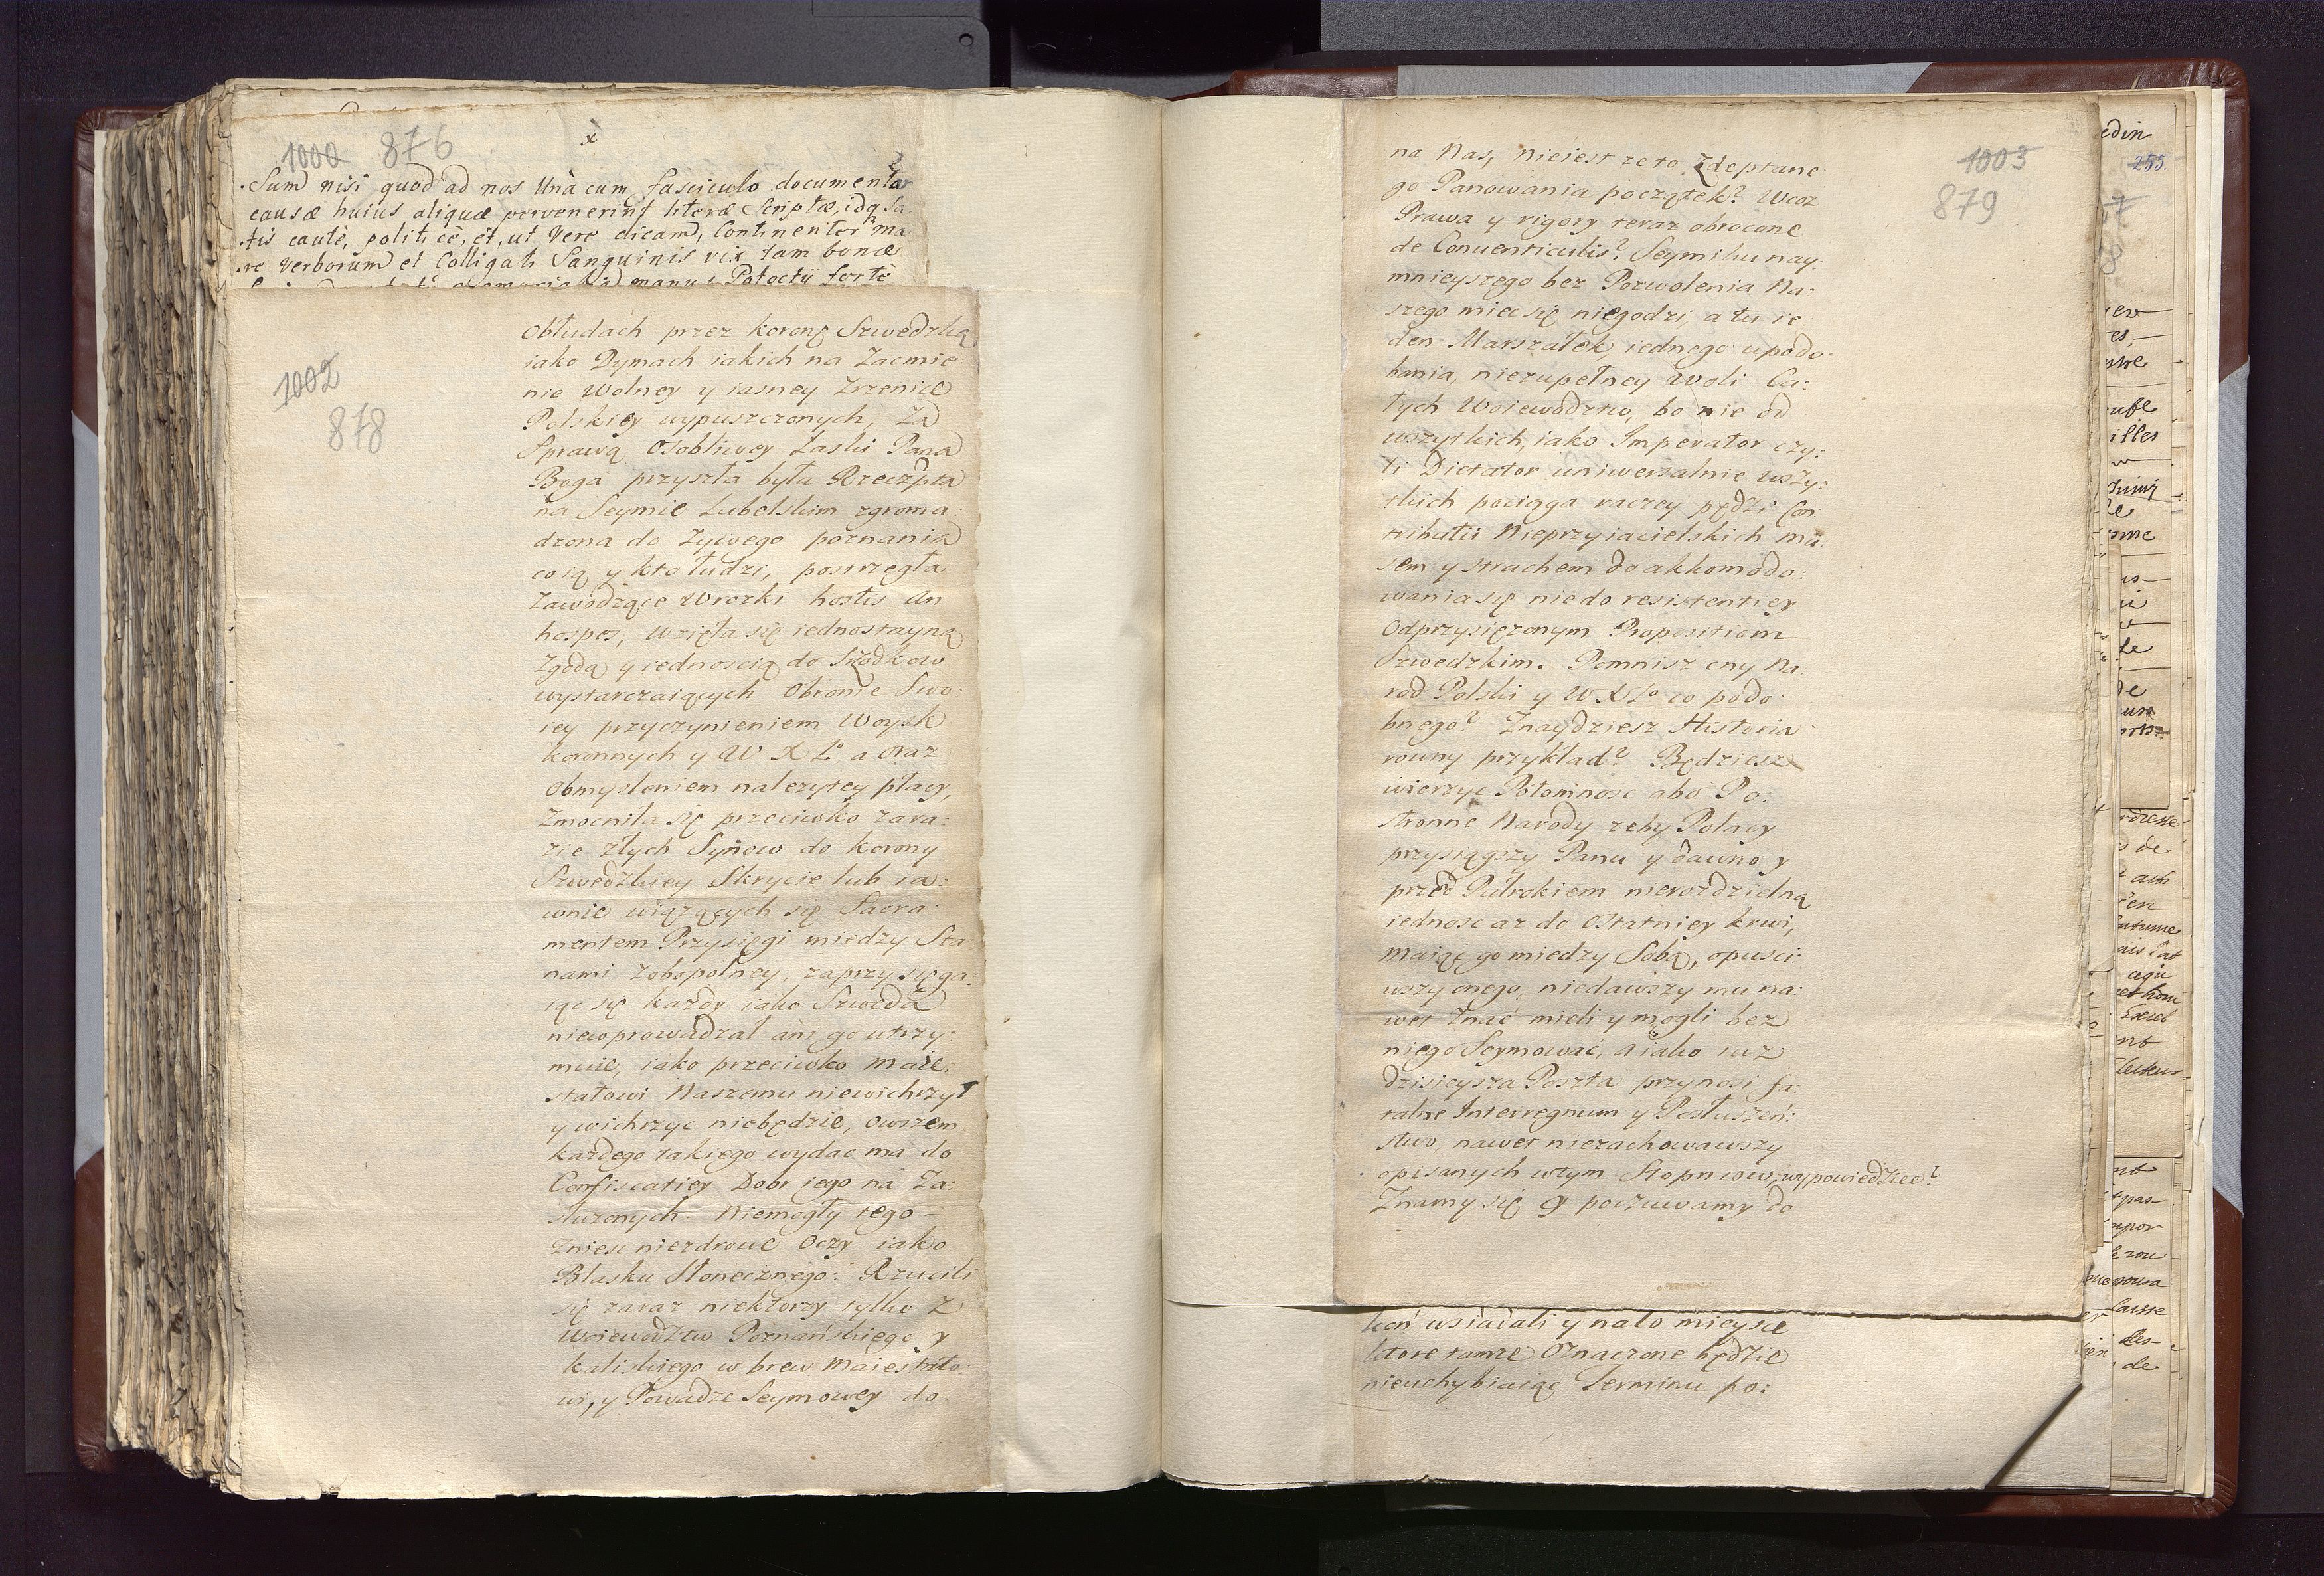 1000 876
x
2
Sum nisi quod ad nos Unà cum fasciculo documentor
causæ huius aliquæ pervenerint literæ Scriptæ, idq, Sa
tis cautè, politicè, et, ut Vere dicam, Continenter ma
re Verborum et Colligati Sanguinis vix tam bonæ
manu Potocÿ fortè
1002
878
Obłudach przez koronę Szwedzką
iako Dymach iakich na Zacmie:
nie Wolney y iasney Zrzenice
Polskiey wypuszczonych, Za
Sprawą Osobliwey Łaski Pana
Boga przyszła była Rzeczpta
na Seymie Lubelskim zgroma:
dzona do Zywego poznania
co ią y kto łudzi, postrzegła
Zawodzące Wrozki hostis An
hospes, wzięła się iednostayną
Zgodą y iednoscią do Srzodkow
wystarczaiących Obronie Swo:
iey przyczynieniem Woysk
koronnych y W X Lo a oraz
Obmysleniem nalezytey płacy,
Zmocniła się przeciwko zara:
zie złych Synow do korony
Szwedzkiey Skrycie lub ia:
wnie wiązących się Sacra:
mentem Przysięgi miedzy Sta:
nami Zobopolney, zaprzysięga:
iąc się kazdy iako Szweda
niewprowadzał ani go utrzy:
muie, iako przeciwko Maie:
statowi Naszemu niewichrzył
y wichrzyc niebędzie, owszem
kazdego takiego wydac ma do
Confiscatiey Dobr iego na Za:
słuzonych. Niemogły tego
znieśc niezdrowe Oczy iako
Blasku Słonecznego: Rzucili
się zaraz niektorzy tylko z
Woiewodztw Poznańskiego y
kaliskiego w brew Maiestato:
wi, y Powadze Seymowey do
1003
879
na Nas, nieiest ze to Zdeptane
go Panowania początek? Wcoz
Prawa y rigory teraz obrocone
de Conuenticulis? Seymiku nay:
mnieyszego bez Pozwolenia Na:
szego miec się niegodzi, a tu ie
den Marszałek, iednego upodo
bania, niezupełney Woli Ca:
łych Woiewodztw, bo nie od
wszytkich, iako Imperator czy:
li Dictator uniwersalnie wszy:
tkich pociąga raczey pędzi Con:
tributii Nieprzyiacielskich mu:
sem y strachem do akkomodo:
wania się nie do resistentiey
Odprzysięzonym Propositiom
Szwedzkim. Pomnisz cny Na
rod Polski y W X Lo co podo:
bnego? Znaydziesz Historia
rowny przykład? Będziesz
wierzyc Potomnosc abo Po:
stronne Narody zeby Polacy
przysiągszy Panu y dawno y
przed Pułrokiem nierozdzielną
iednosc az do Ostatniey krwi,
maiąc go miedzy Sobą, opusci:
wszy onego, niedawszy mu na:
wet Znać mieli y mogli bez
niego Seymować, a iako iuz
dzisieysza Poszta przynosi fa:
talne Interregnum y Posłuszeń:
stwo, nawet niezachowawszy
opisanych wtym Stopniow, wypowiedziec?
Znamy się y poczuwamy do
koń wsiadali y nato mieysce
ktore tamze Oznaczone będzie
nieuchybiaiąc Terminu po:
edin
255.